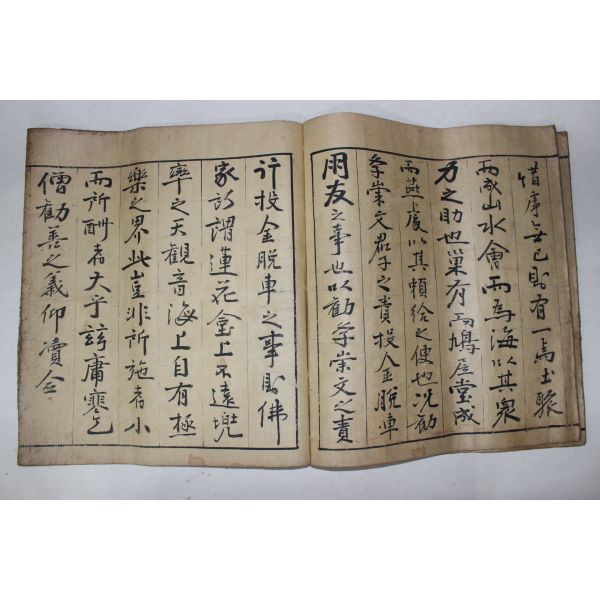 惜孝無已則有一焉土聚
而成山水會而爲海以其衆
力之助也巢有而鳩居堂成
而燕處以其賴給之便也况勸
學崇文君子之責投金脫車
朋友之事也以勸學崇文之責
行投金脫車之事則佛
家所謂蓮花臺上不遠兜
率之天觀音海上自有極
樂之界此豈非所施者小
而所酬者大乎玆庸寒乞
僧勸善之義仰瀆仝